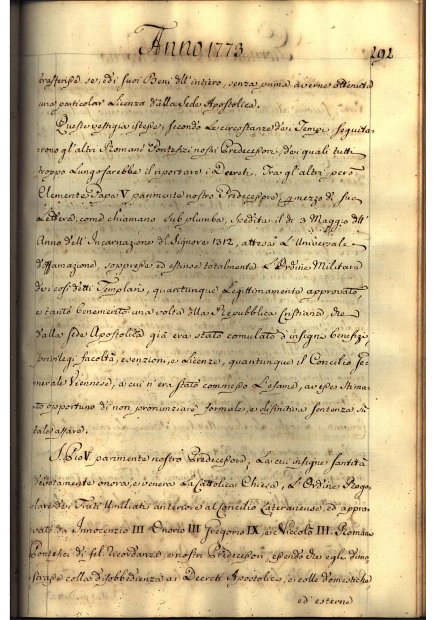 Anno 1773
292
trasferirse se, ed i suoi Beni all'intiero, senza prima averne ottenuta
una particolar Licenza dalla Sede Apostolica.
Queste vestigia istesse, secondo le circostanze dei Tempi seguita-
rono gl'altri Romani Pontefici nostri Predecessori, dei quali tutti
troppo Lungo sarebbe il riportare i Decreti. Tra gl'altri però
Clemente Papa V. parimente nostro Predecessore, per mezzo di sue
Lettere, come chiamano Sub plumbo, spedite il dì 3 Maggio dell'
Anno dell'Incarnazione del Signore 1312, attesa L'Universale
diffamazione, soppresse ed estinse totalmente L'Ordine Militare
dei così detti Templari, quantunque Legittimamente approvato,
e tanto benemerito una volta della Repubblica Cristiana, che
dalla Sede Apostolica già era stato comulato d'insigni benefizj,
privilegj facoltà, esenzioni, e Licenze, quantunque il Concilio Ge-
nerale Viennese, a cui n'era stato commesso L'esame, avesse stima-
to opportuno di non pronunciare formale, e difinitiva sentenza su
tale affare.
S. Pio V. parimente nostro Predecessore, La cui insigne santità
devotamente onora, e venera La Cattolica Chiesa, L'Ordine Rego-
lare dei Frati Umiliati anteriore al Concilio Lateranense, ed appro-
vato da Innocenzio III Onorio III Gregorio IX, e Niccolò III. Romani
Pontefici di fel. ricordanza, e nostri Predecessori, essendo che egli dimo-
strasse colla disobbedienza ai Decreti Apostolici, e colle domestiche,
ed esterne